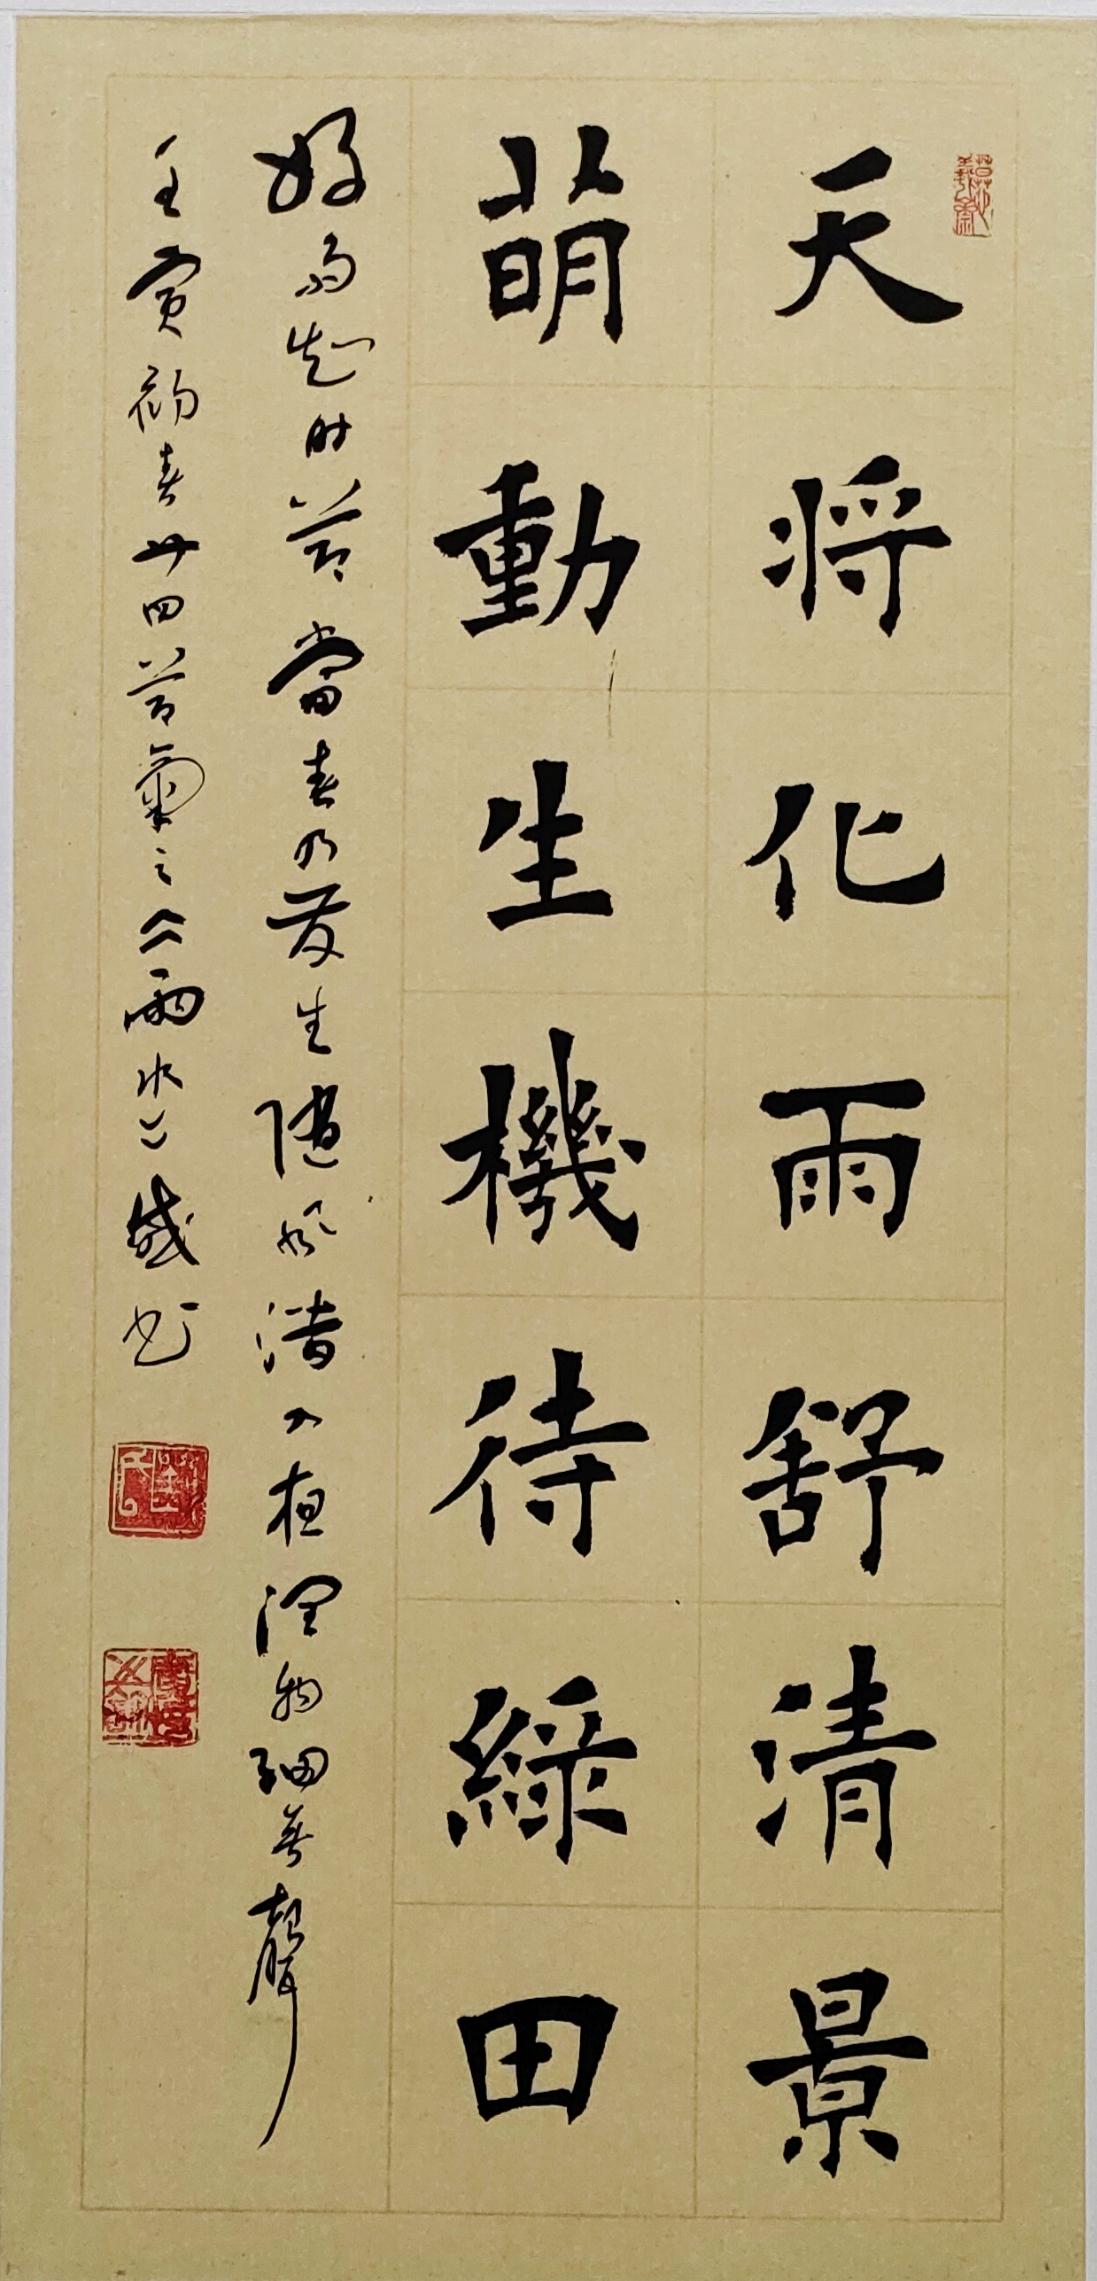 天将化雨舒清景
萌動生機待綠田
好雨知時節當春乃發生隨風潛入夜潤物細無聲
壬寅初春廿四節氣之《雨水》盛书